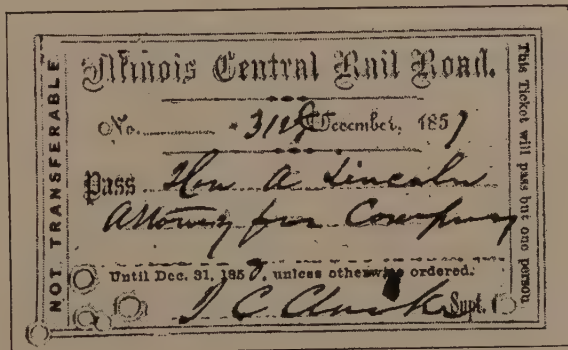 NOT TRANSFERABLE
Illinois Central Rail Road.
No. 31st December, 1857
Pass Hon A Lincoln
Attorney for Company
Until Dec. 31, 1858, unless otherwise ordered.
J C Clarke Supt.
This Ticket will pass but one person